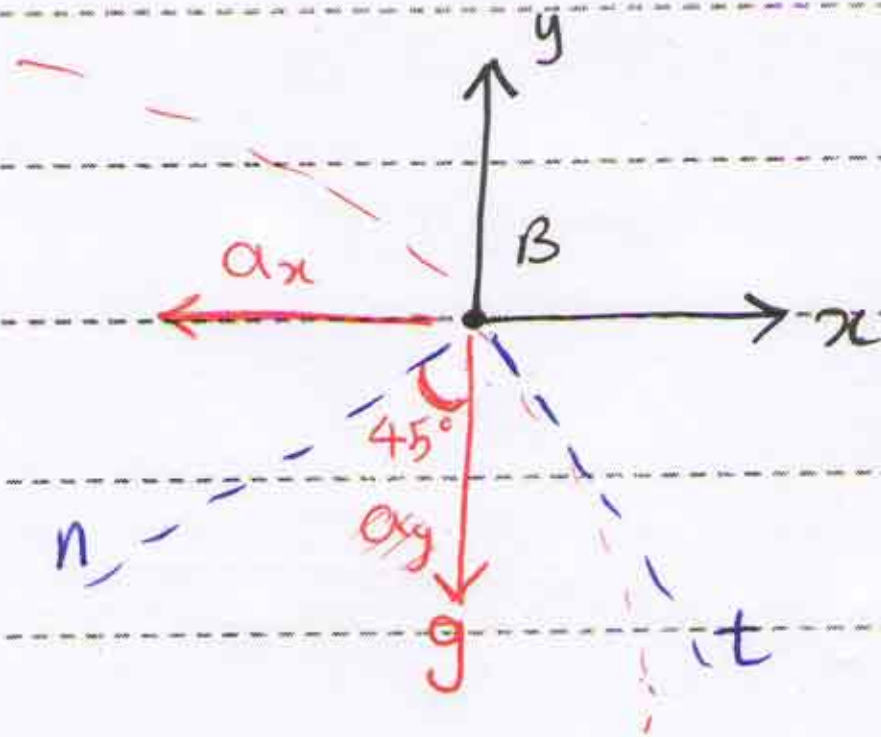 y
B
aₓ
x
45°
n
a_y
g
t